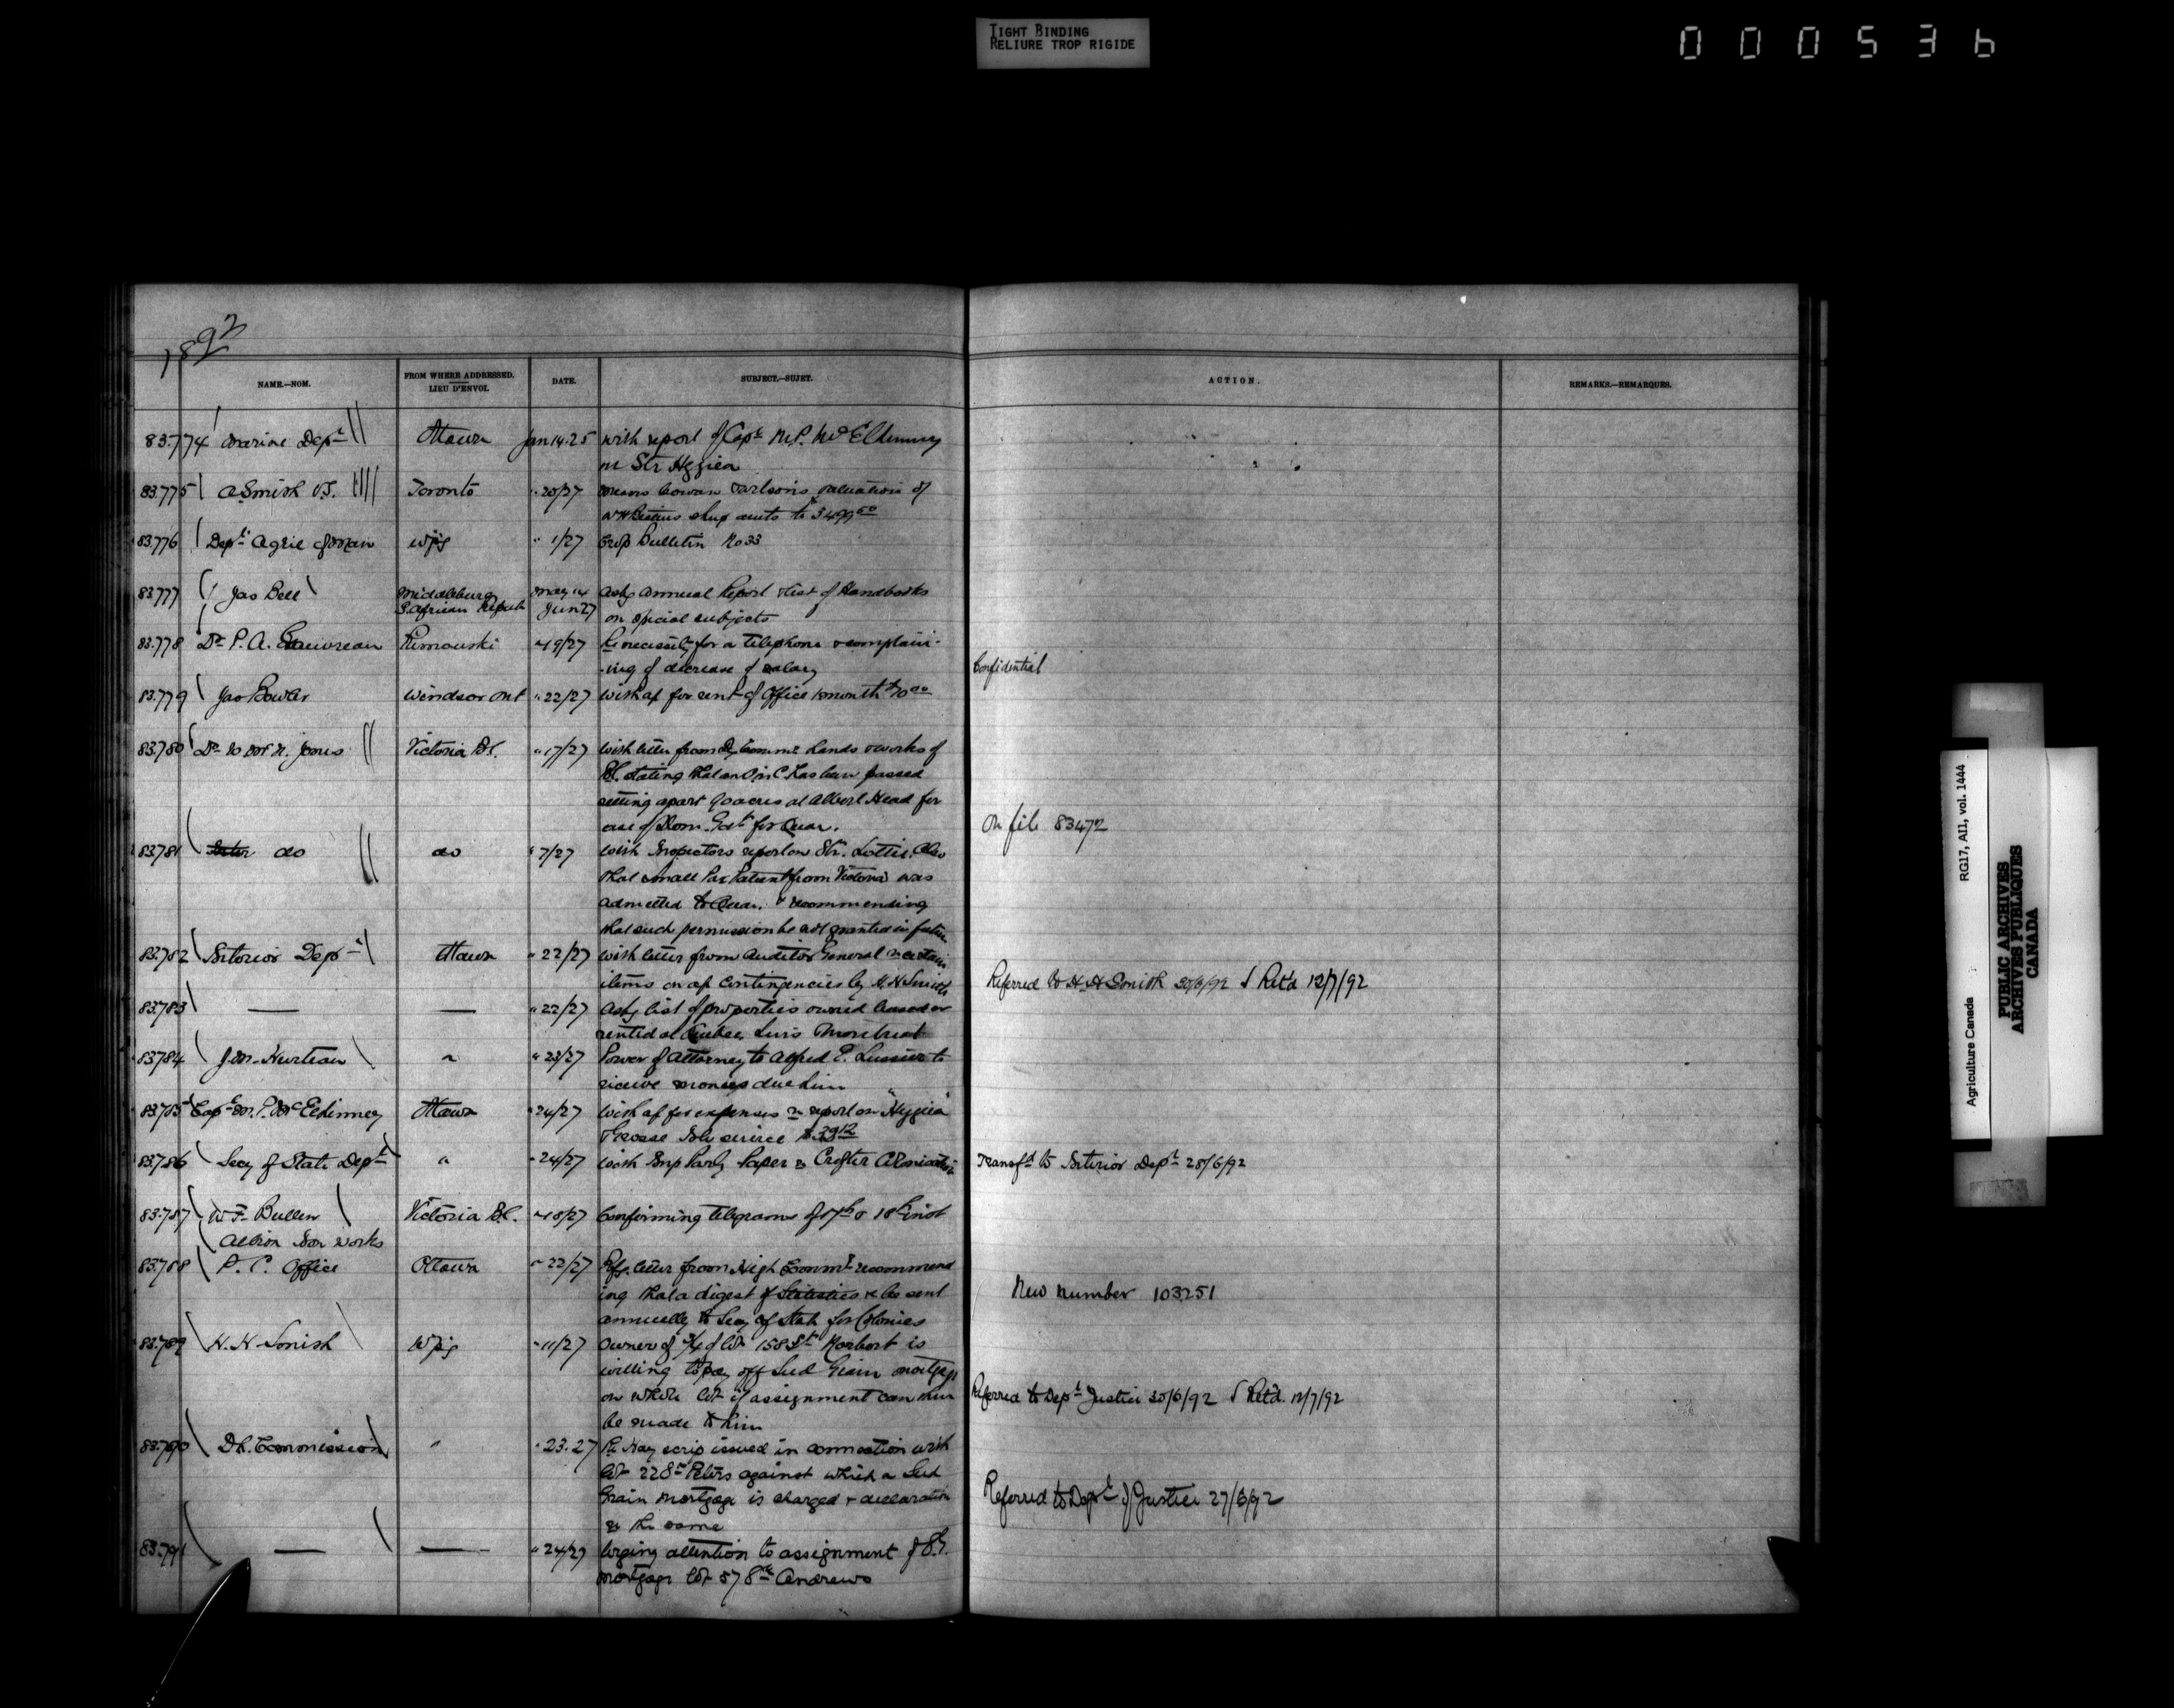 TIGHT BINDING
RELIURE TROP RIGIDE
000536
1892
NAME.—NOM.
FROM WHERE ADDRESSED.
LIEU D'ENVOI.
DATE.
SUBJECT.—SUJET.
ACTION.
REMARKS.—REMARQUES.
83.774 Marine Dept Ottawa Jun 14.25 with report of Capt M.P. McElhinney
on Str Hygiea
83.775 A Smith V.S. Toronto " 20/27 Cowan valuation of
83.776 Dept Agric of Man Wpg " 1/27 Crop Bulletin No 33
83777 Jas Bell Middleburg May 14 Askg Annual Report & list of Handbooks
S. African Repub Jun 27 on special subjects
83.778 Dr P. A. Gauvreau Rimouski " 19/27 Re necessity for a telephone & complain-
-ing of decrease of salary Confidential
83.779 Jas Bowler Windsor Ont " 22/27 With a/c for rent of Office 1 month $10 00
83.780 Dr W M N. Jones Victoria B.C. " 17/27 With letter from Dy Commr Lands & Works of
BC. stating that an O in C has been passed
setting apart 90 acres at Albert Head for
use of Dom. Govt for Quar. On file 83472
83.781 do do " 7/27 With Inspectors report on Str. Lottie. Also
that small Pox Patient from Victoria was
admitted to Quar. & recommending
that such permission be not granted in future
83.782 Interior Dept Ottawa " 22/27 With letter from Auditor General re certain
items on a/c Contingencies by H. H Smith Referred to H. H Smith 30/6/92 Retd 12/7/92
83.783 — — " 22/27 Askg list of properties owned leased or
rented at Quebec, Levis Montreal
83784 J. M. Hurteau " " 23/27 Power of Attorney to Alfred E. Lussier to
receive monies due him
83.785 Capt M. P. McElhinney Ottawa " 24/27 With a/c for expenses re report on "Hygiea"
Grosse Isle service $39 12
83.786 Secy of State Dept " " 24/27 With Imp Parly Paper re Crofter Colonization Transfd to Interior Dept 28/6/92
83.787 W F. Bullen Victoria B.C. " 18/27 Confirming telegrams of 17th & 18th inst
Albion Iron Works
83.788 P. C. Office Ottawa " 22/27 Refg. letter from High Commr recommend
ing that a digest of Statistics & be sent New number 103.251
annually to Secy of State for Colonies
83.789 H. H Smith Wpg " 11/27 Owner of 3/4 of lot 158 St Norbert is
willing to pay off Seed Grain mortgage
on whole lot if assignment can then Referred to Dept Justice 30/6/92 Retd. 12/7/92
be made to him
83.790 D.L. Commission " " 23.27 Re Hay scrip issued in connection with
lot 22 St Peters against which a Seed
Grain Mortgage is charged & declaration Referred to Dept of Justice 27/6/92
re the same
83.791 — — " 24/27 Urging attention to assignment of S.G.
mortgage lot 57 St Andrews
Agriculture Canada RG17, AII, vol. 1444
PUBLIC ARCHIVES
ARCHIVES PUBLIQUES
CANADA